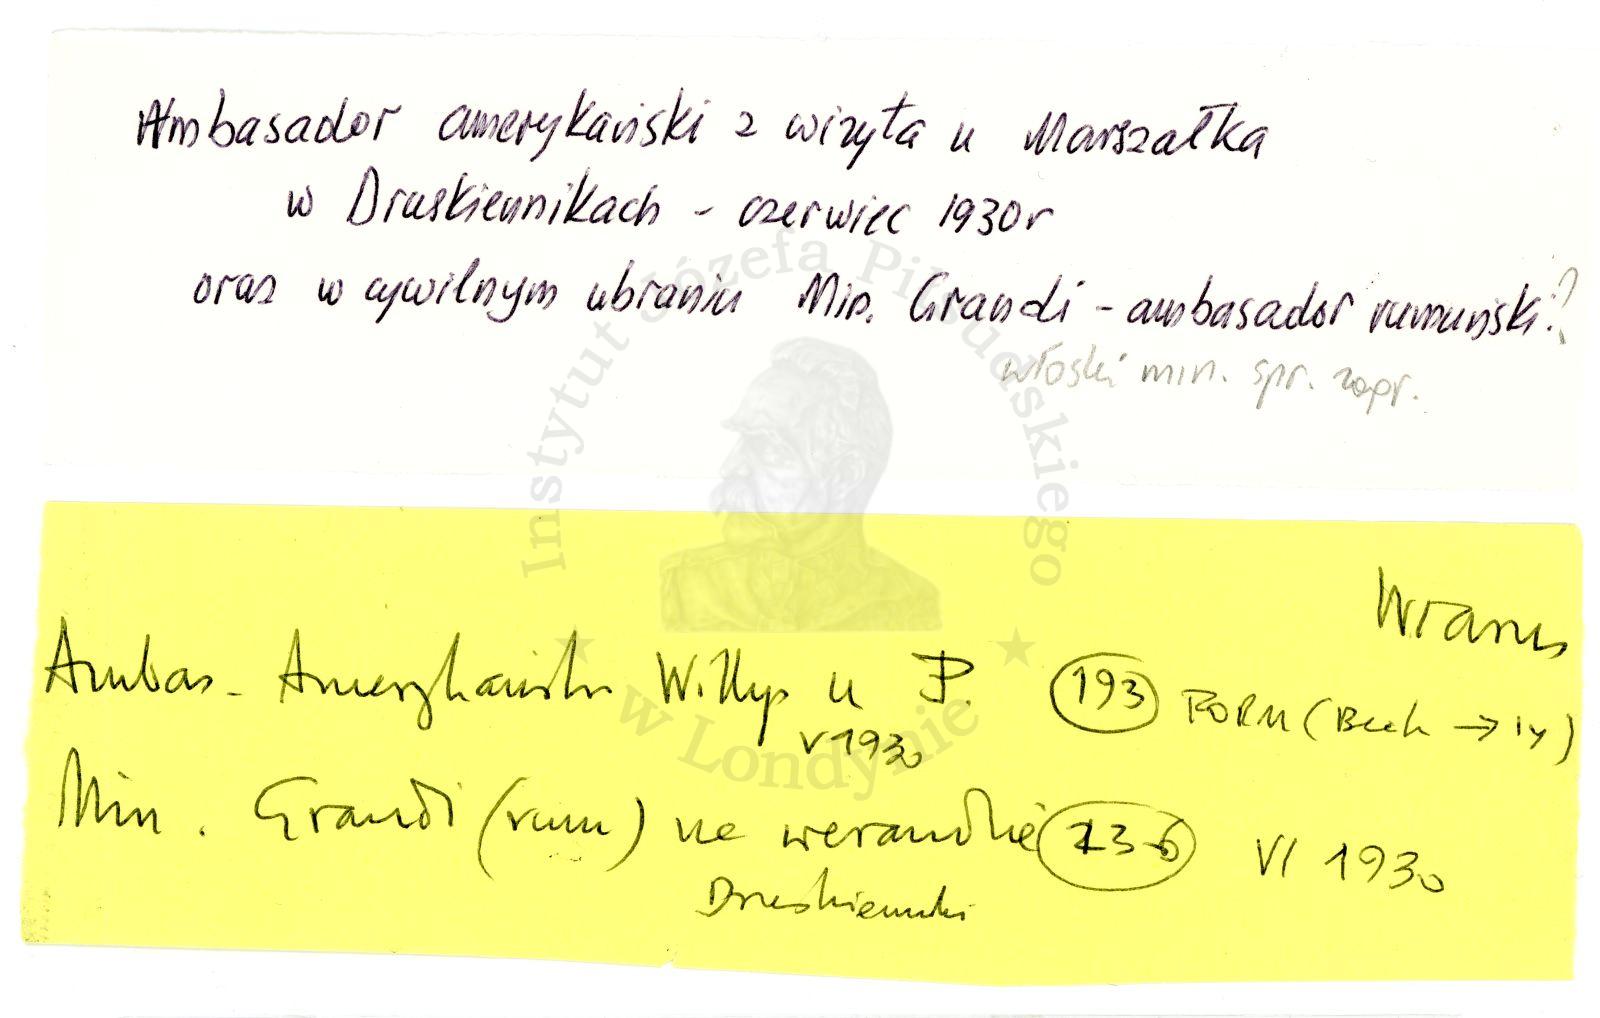 Ambasador amerykański z wizytą u Marszałka
w Druskiennikach - czerwiec 1930r
oraz w cywilnym ubraniu Min. Grandi - ambasador rumuński?
włoski min. spr. zagr.
Instytut Józefa Piłsudskiego
w Londynie
Ambas. Amerykański Willys u P. 193
V 1930
Min. Grandi (rum) na werandzie 236 VI 1930
Druskienniki